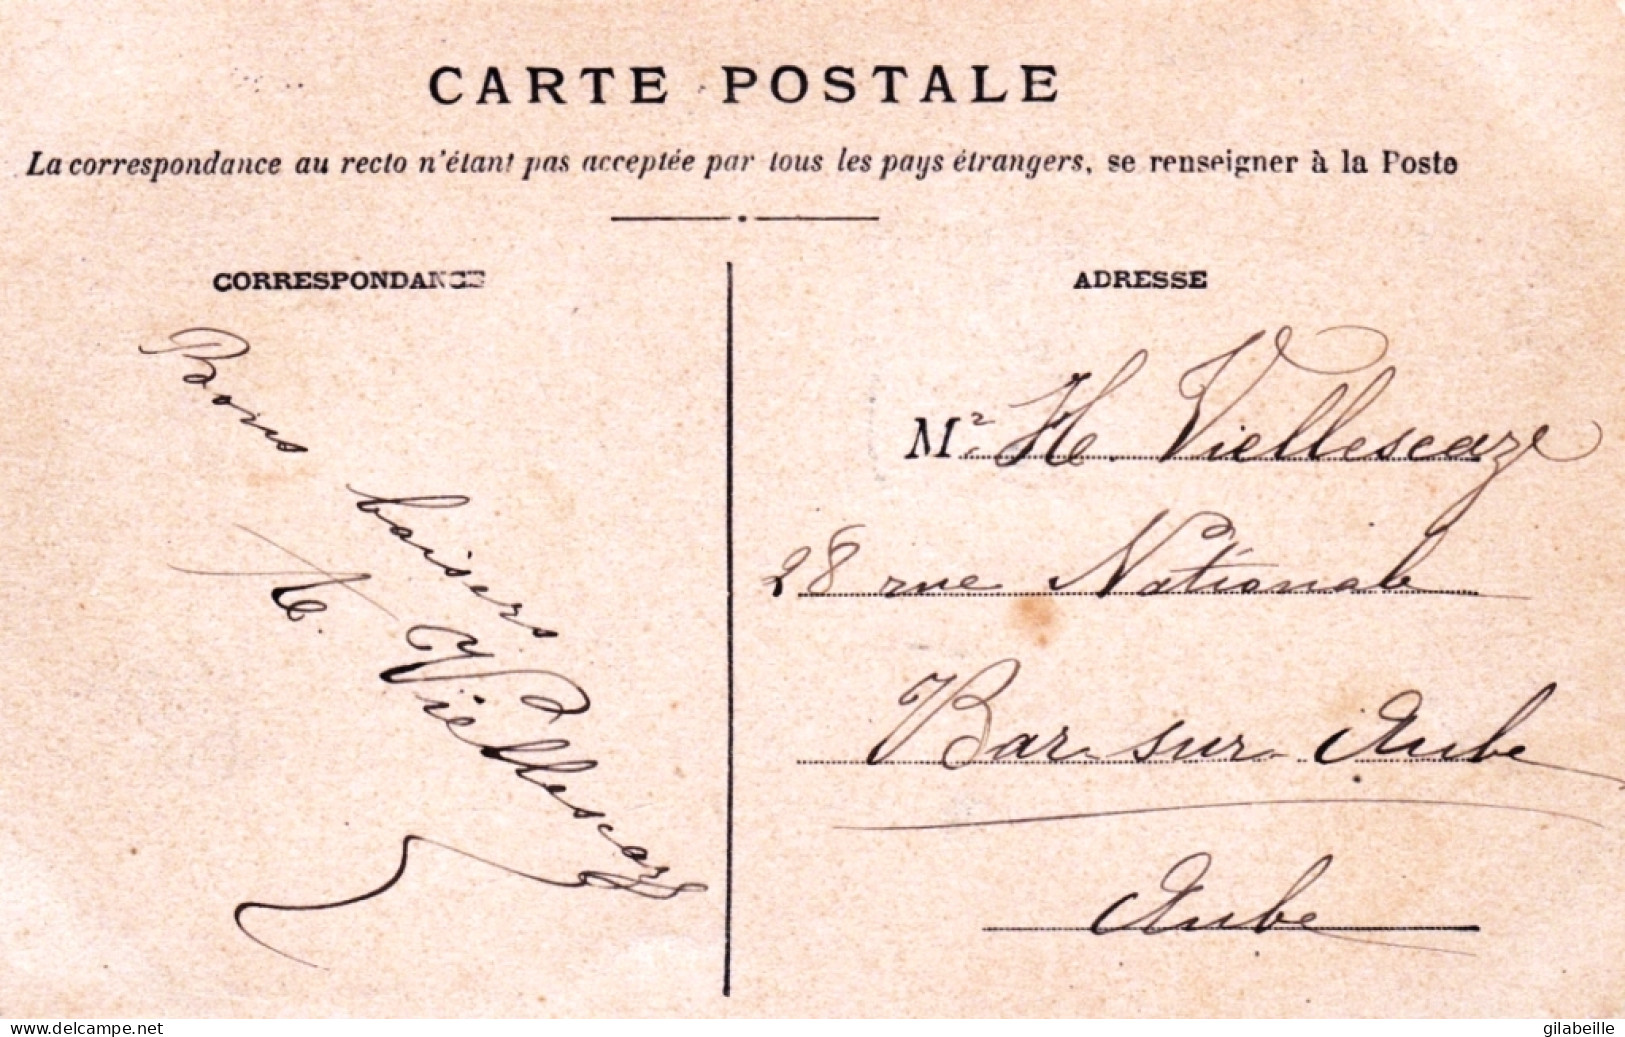 CARTE POSTALE
La correspondance au recto n'étant pas acceptée par tous les pays étrangers, se renseigner à la Poste
CORRESPONDANCE
Bons
baisers
H. Viellescaze
ADRESSE
Mr H. Viellescaze
28 rue Nationale
Bar-sur-Aube
Aube
www.delcampe.net
gilabeille